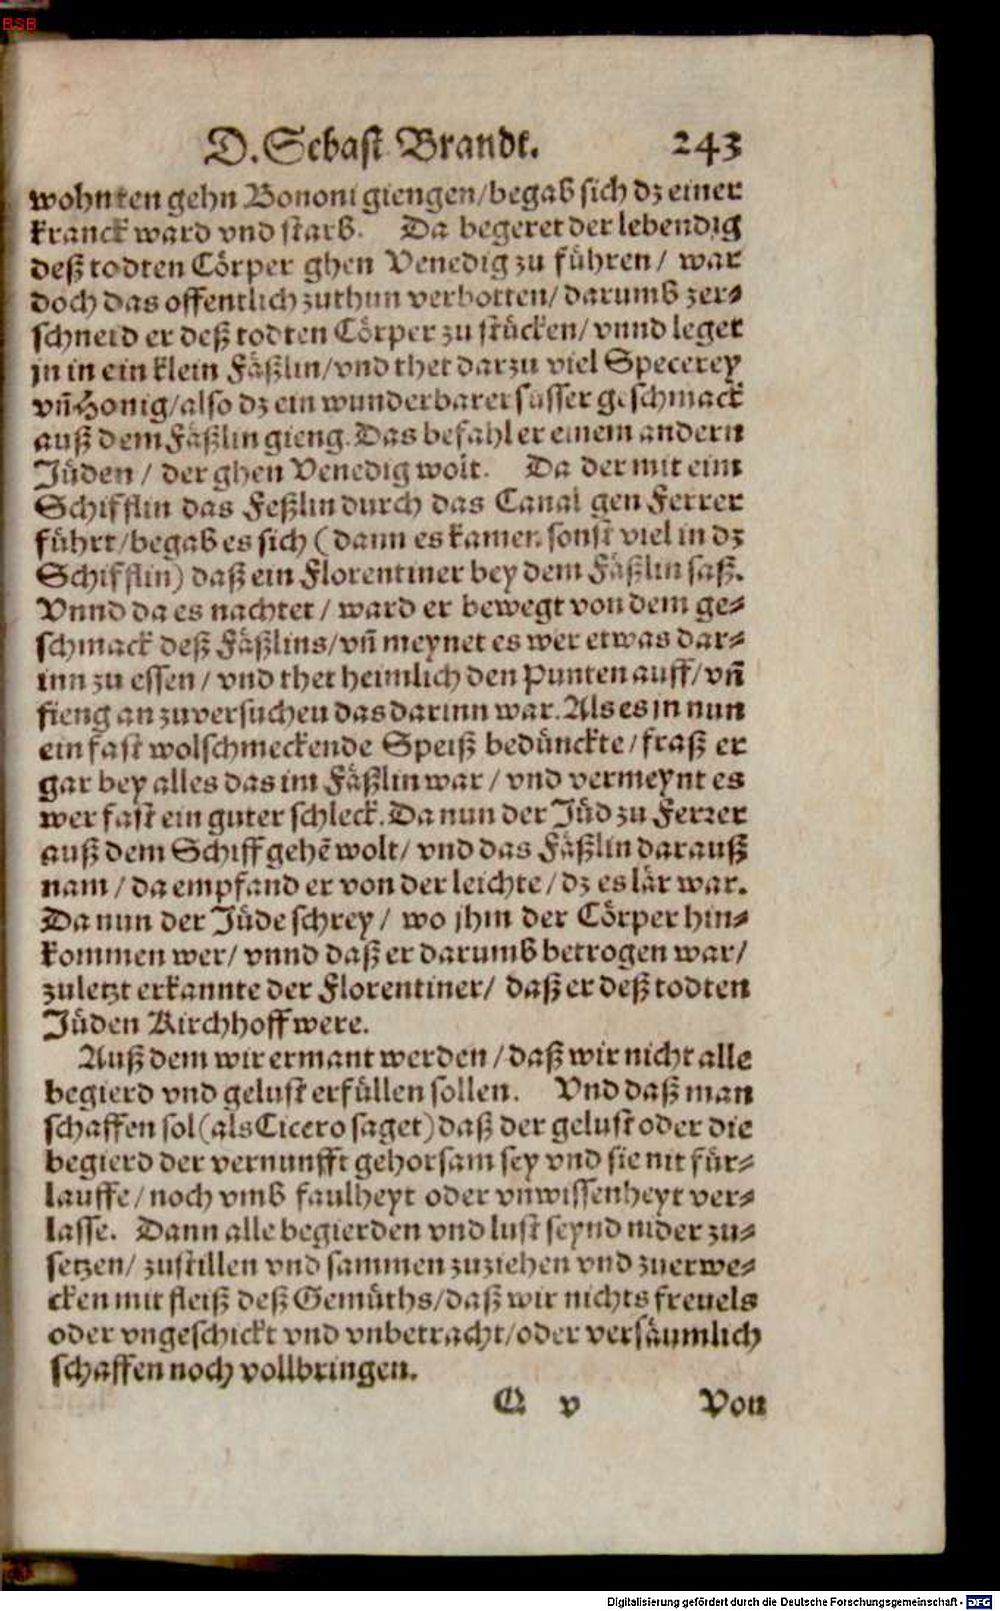 BSB
D. Sebast Brandt. 243
wohnten gehn Bononi giengen/begab sich dz einer
kranck ward vnd starb. Da begeret der lebendig
deß todten Cörper ghen Venedig zu führen/ war
doch das offentlich zuthun verbotten/darumb zer-
schneid er deß todten Cörper zu stücken/vnnd leget
jn in ein klein Fäßlin/vnd thet darzu viel Specerey
vñ Honig/also dz ein wunderbarer süsser geschmack
auß dem Fäßlin gieng. Das befahl er einem andern
Jüden / der ghen Venedig wolt. Da der mit eim
Schifflin das Feßlin durch das Canal gen Ferrer
führt/begab es sich (dann es kamen sonst viel in dz
Schifflin) daß ein Florentiner bey dem Fäßlin saß.
Vnnd da es nachtet / ward er bewegt von dem ge-
schmack deß Fäßlins/vñ meynet es wer etwas dar-
inn zu essen / vnd thet heimlich den Punten auff/vñ
fieng an zuversuchen das darinn war. Als es jn nun
ein fast wolschmeckende Speiß bedünckte/fraß er
gar bey alles das im Fäßlin war / vnd vermeynt es
wer fast ein guter schleck. Da nun der Jüd zu Ferrer
auß dem Schiff gehẽ wolt/ vnd das Fäßlin darauß
nam / da empfand er von der leichte / dz es lär war.
Da nun der Jüde schrey / wo jhm der Cörper hin-
kommen wer/ vnnd daß er darumb betrogen war/
zuletzt erkannte der Florentiner/ daß er deß todten
Jüden Kirchhoff were.
Auß dem wir ermant werden / daß wir nicht alle
begierd vnd gelust erfüllen sollen. Vnd daß man
schaffen sol (als Cicero saget) daß der gelust oder die
begierd der vernunfft gehorsam sey vnd sie nit für-
lauffe / noch vmb faulheyt oder vnwissenheyt ver-
lasse. Dann alle begierden vnd lust seynd nider zu-
setzen/ zustillen vnd sammen zuziehen vnd zuerwe-
cken mit fleiß deß Gemüths/daß wir nichts freuels
oder vngeschickt vnd vnbetracht/oder versäumlich
schaffen noch vollbringen.
Q v Von
Digitalisierung gefördert durch die Deutsche Forschungsgemeinschaft - DFG